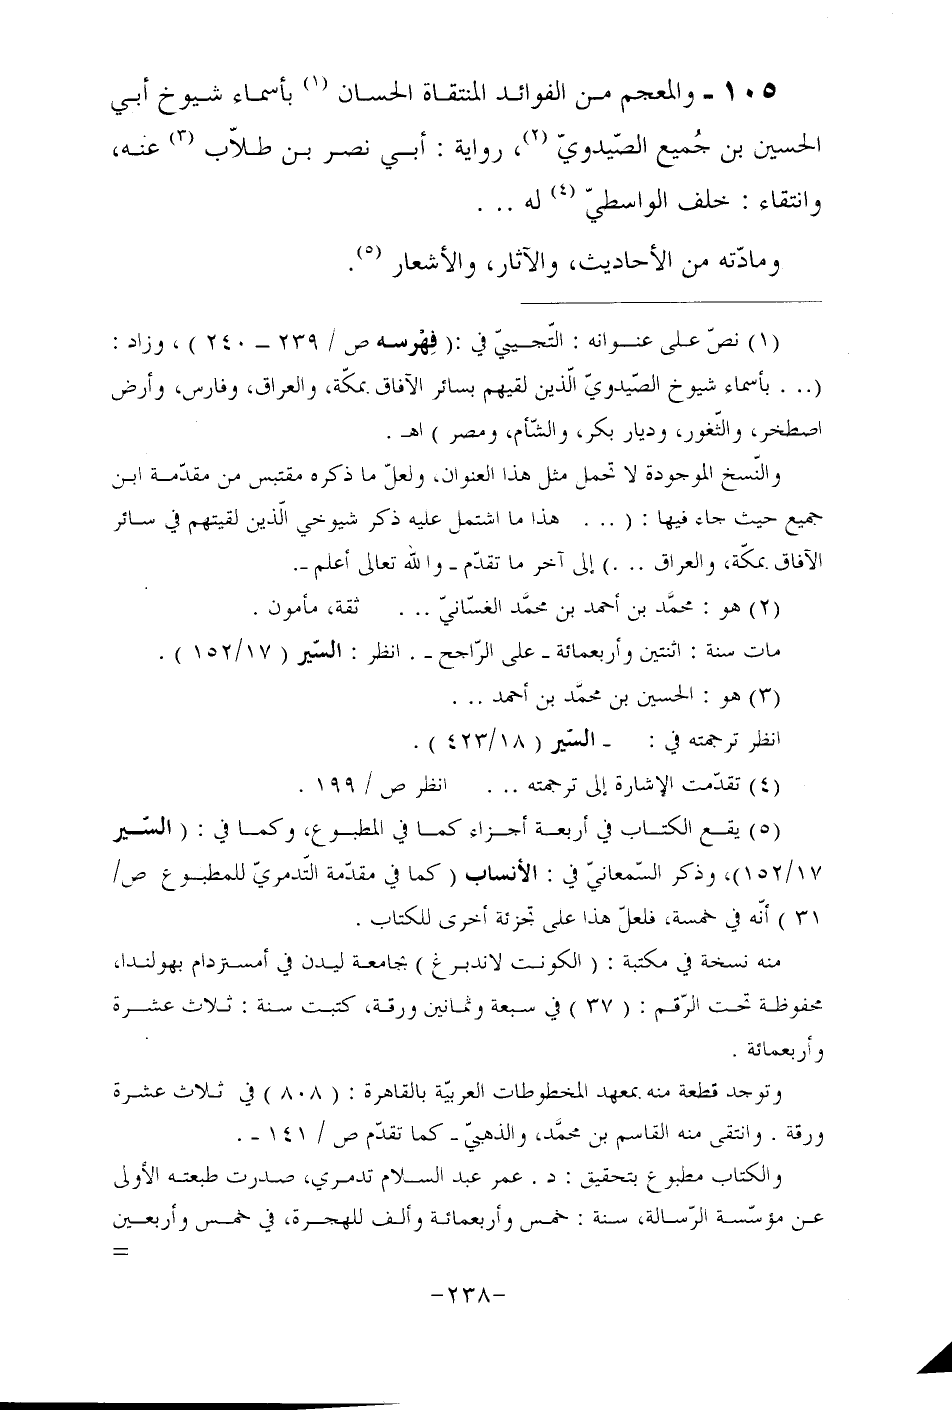 ١٠٥ - والمعجم من الفوائد المنتقاة الحسان (١) بأسماء شيوخ أبي
الحسين بن جُميع الصّيدويّ (٢)، رواية : أبي نصر بن طلاّب (٣) عنه،
وانتقاء : خلف الواسطيّ (٤) له ...
ومادّته من الأحاديث، والآثار، والأشعار (٥).
(١) نصّ على عنوانه : التّجيبيّ في :( فِهْرسه ص / ٢٣٩ – ٢٤٠ ) ، وزاد :
(... بأسماء شيوخ الصّيدويّ الّذين لقيهم بسائر الآفاق بمكّة، والعراق، وفارس، وأرض
اصطخر، والثّغور، وديار بكر، والشّأم، ومصر ) اهـ .
والنّسخ الموجودة لا تحمل مثل هذا العنوان، ولعلّ ما ذكره مقتبس من مقدّمة ابن
جميع حيث جاء فيها : ( ... هذا ما اشتمل عليه ذكر شيوخي الّذين لقيتهم في سائر
الآفاق بمكّة، والعراق ...) إلى آخر ما تقدّم ـ والله تعالى أعلم ـ.
(٢) هو : محمَّد بن أحمد بن محمَّد الغسّانيّ ... ثقة، مأمون .
مات سنة : اثنتين وأربعمائة ـ على الرّاجح ـ . انظر : السّير ( ١٥٢/١٧ ) .
(٣) هو : الحسين بن محمَّد بن أحمد ...
انظر ترجمته في : ـ السّير ( ٤٢٣/١٨ ) .
(٤) تقدّمت الإشارة إلى ترجمته ... انظر ص / ١٩٩ .
(٥) يقع الكتاب في أربعة أجزاء كما في المطبوع، وكما في : ( السّير
١٥٢/١٧)، وذكر السّمعانيّ في : الأنساب ( كما في مقدّمة التّدمريّ للمطبوع ص/
٣١ ) أنّه في خمسة، فلعلّ هذا على تجزئة أخرى للكتاب .
منه نسخة في مكتبة : ( الكونت لاندبرغ ) بجامعة ليدن في أمستردام بهولندا،
محفوظة تحت الرّقم : ( ٣٧ ) في سبعة وثمانين ورقة، كتبت سنة : ثلاث عشرة
وأربعمائة .
وتوجد قطعة منه بمعهد المخطوطات العربيّة بالقاهرة : ( ٨٠٨ ) في ثلاث عشرة
ورقة . وانتقى منه القاسم بن محمَّد، والذهبيّ ـ كما تقدّم ص / ١٤١ ـ .
والكتاب مطبوع بتحقيق : د . عمر عبد السلام تدمري، صدرت طبعته الأولى
عن مؤسّسة الرّسالة، سنة : خمس وأربعمائة وألف للهجرة، في خمس وأربعين
=
-٢٣٨-